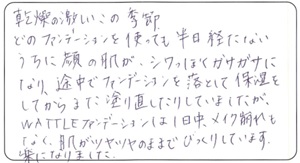 乾燥の激しいこの季節
どのファンデーションを使っても半日経たない
うちに顔の肌が、シワっぽくガサガサに
なり、途中でファンデーションを落として保湿を
してからまた塗り直したりしていましたが、
WATTLEファンデーションは1日中、メイク崩れも
なく、肌がツヤツヤのままでびっくりしています。
楽になりました。